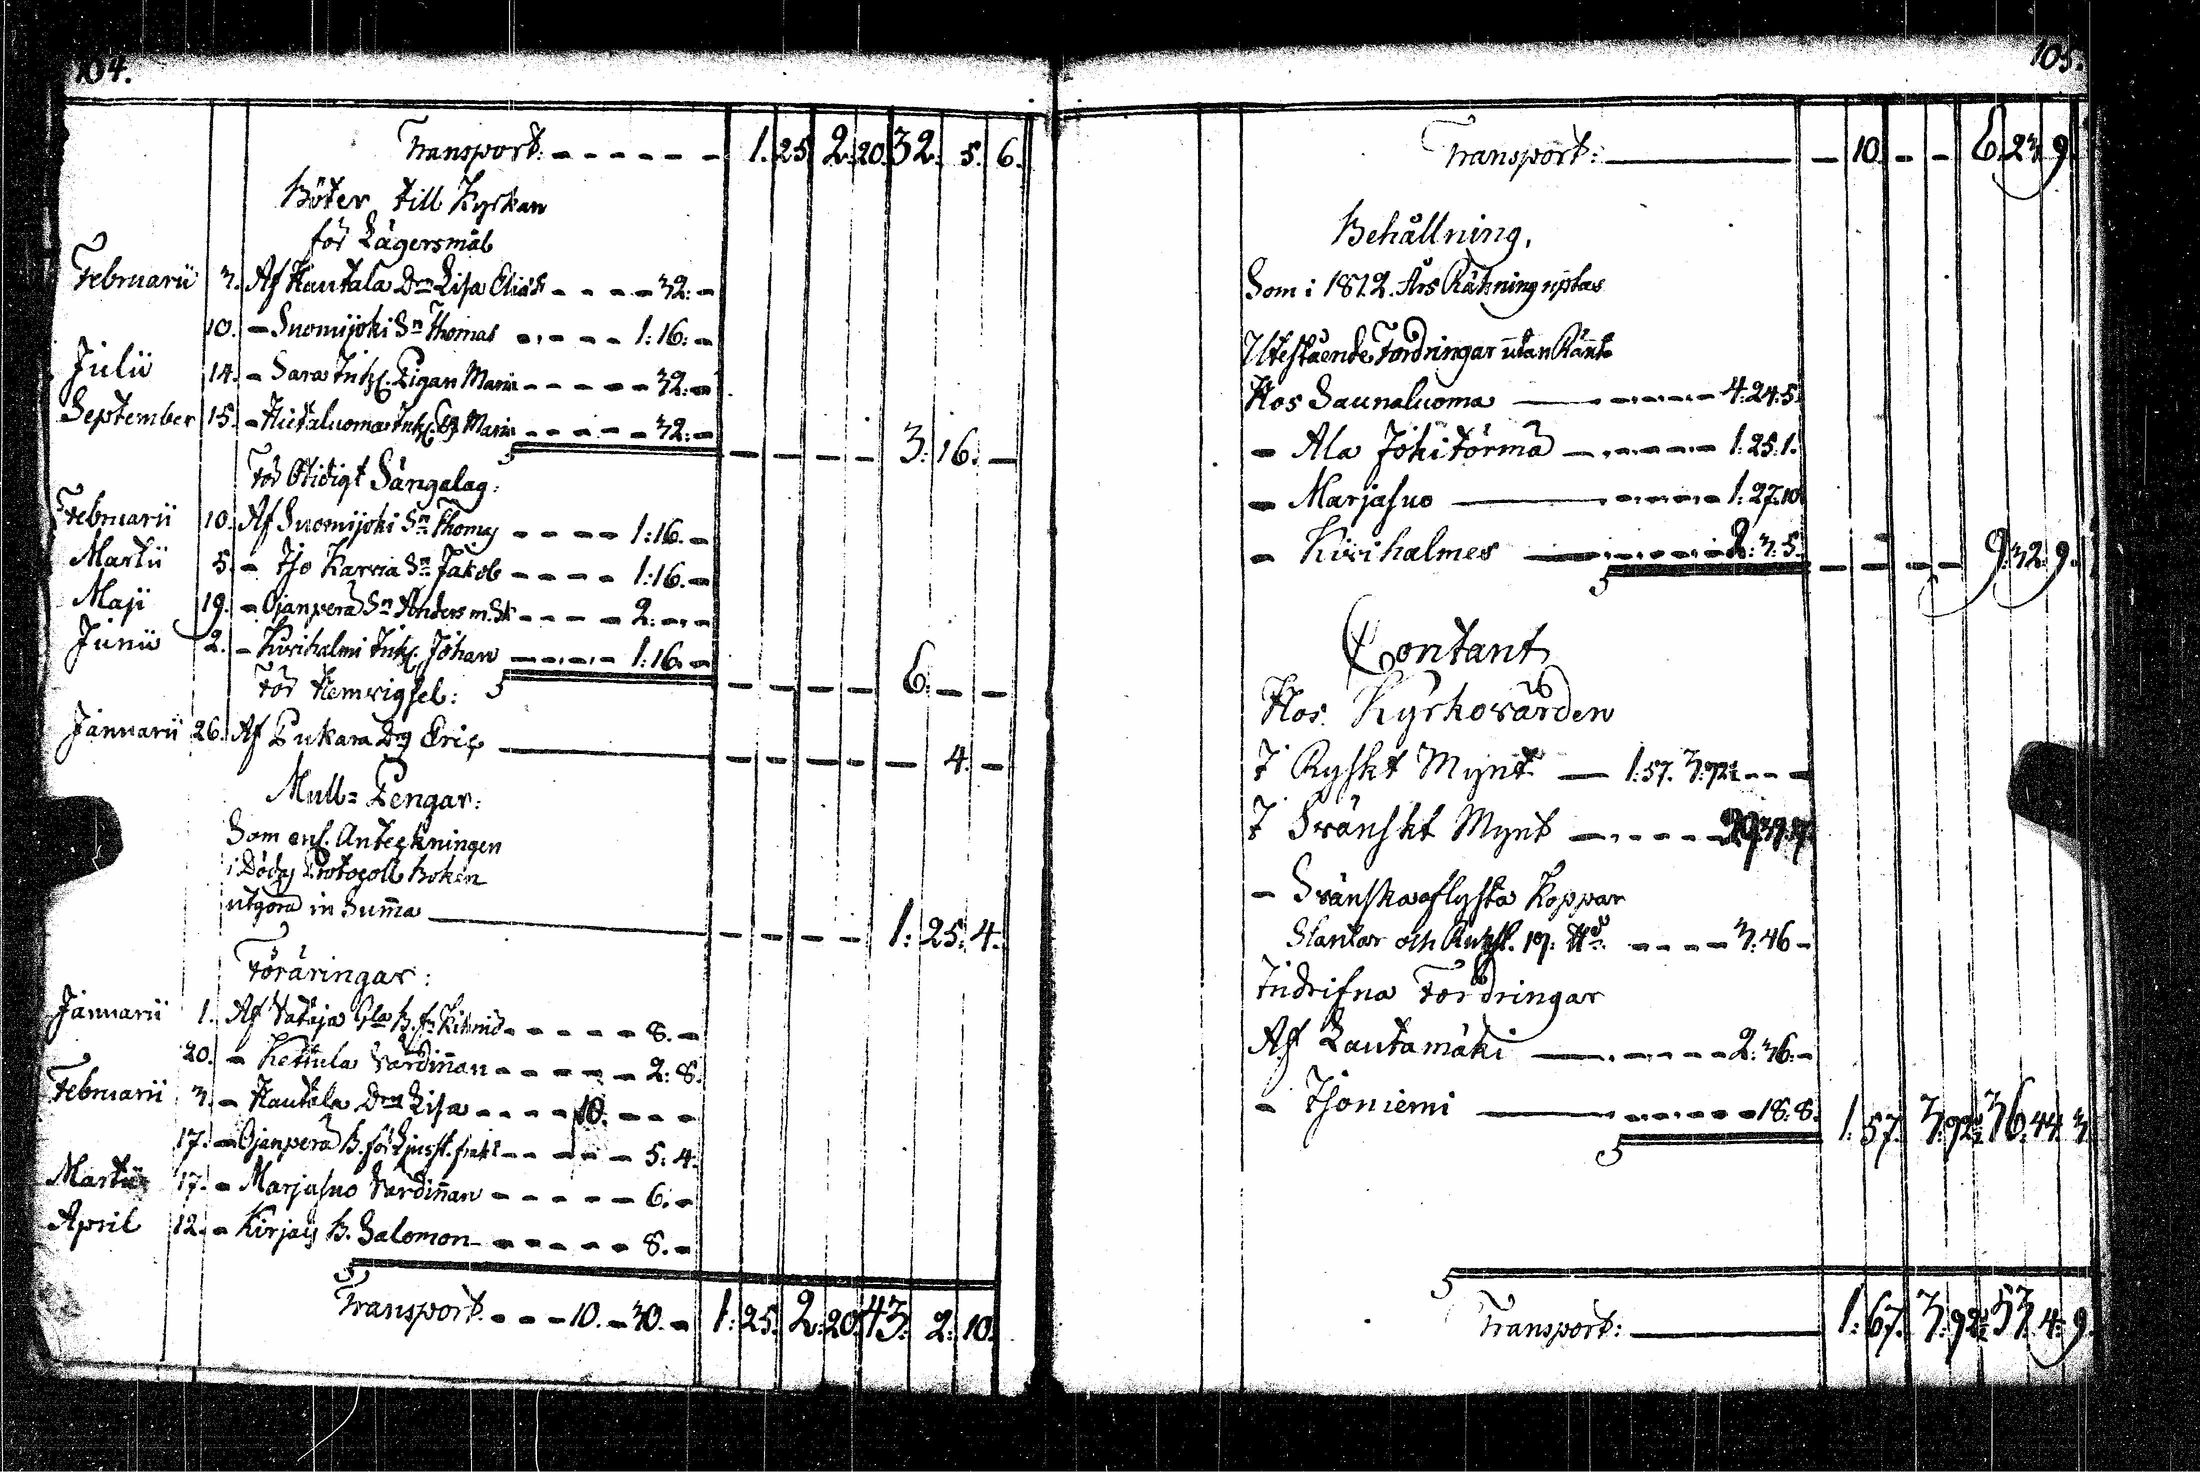 104.
Transport: 1. 25. 2. 20. 32. 5. 6.
Böter till Kyrkan
för Lägersmål
Februarii 3. Af Hautala Drn Lisa 32. -
10. - Suomijoki Sn Thomas 1: 16: -
Julii 14. - Sara Inh. Pigan Maria 32: -
September 15. - Hietaluoma Inh. Maria 32: -
- - - - 3: 16. -
För Otidigt Sängalag:
Februarii 10. Af Suomijoki Sn Thomas 1: 16. -
Martii 5. - Iso Karvia Sn Jakob 1: 16. -
Maji 19. - Ojanperä Sn Anders 2: - -
Junii 2. - Kivihalmi Inh. Johan 1: 16. -
- - - - 6: - -
För Hemvigsel:
Januarii 26. Af Pukara Eric - - - - - 4. -
Mull= Pengar:
Som enl. Anteckningen
i Dödas Protocoll Boken
utgöra in Summa - - - - 1: 25: 4.
Föräringar:
Januarii 1. Af Vataja 8. -
20. - Kettula Värdinnan 2: 8.
Februarii 3. - Hautala Drn Lisa 10. - - -
17. - Ojanperä B. för 5: 4.
Martii 17. - Marjasuo Värdinnan 6. -
April 12. - B. Salomon 8. -
Transport 10. - 30. - 1: 25. 2: 20. 43: 2: 10.
105.
Transport: - 10. - - 6. 23. 9.
Behållning,
Som i 1812. Års Räkning uptas
Utestående Fordringar utan Ränta
Hos Saunaluoma 4: 24: 5.
- Ala Jokitörmä 1: 25: 1.
- Marjasuo 1: 27. 10
- Kivihalmes 2: 3: 5.
- - - - 9: 32. 9.
Contant
Hos Kyrkovärden
I Ryskt Mynt 1: 57. 3: 92½ - - -
I Svänskt Mynt
- Svänska aflysta Koppar
Slantar och 3: 46 -
Indrifna Fordringar
Af Lautamäki 2: 36. -
- Isoniemi 18: 8.
1: 57. 3: 92½ 36. 44. 3.
Transport: 1: 67. 3: 92½ 53. 4: 9.